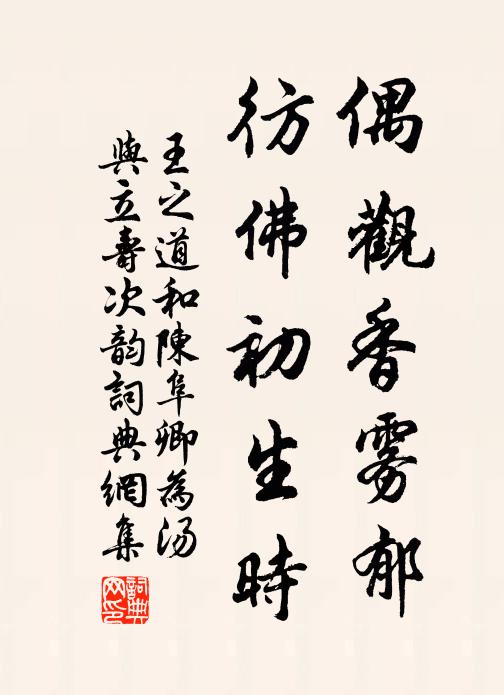 偶觀香雾郁
彷佛初生時
王之道和陳阜卿為湯
與立壽次韵詞典網集
詞典
网印